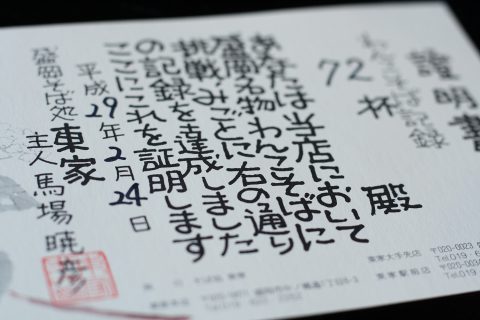 證明書
わんこそば記録
72杯
殿
あなたは当店において
盛岡名物わんこそばに
挑戦みごとに右の通り
の記録を達成しました
ここにこれを証明します
平成29年2月24日
盛岡そば処
東家
主人 馬場暁彦
東家大手先店 〒020-0023
東家駅前店 〒020-0034